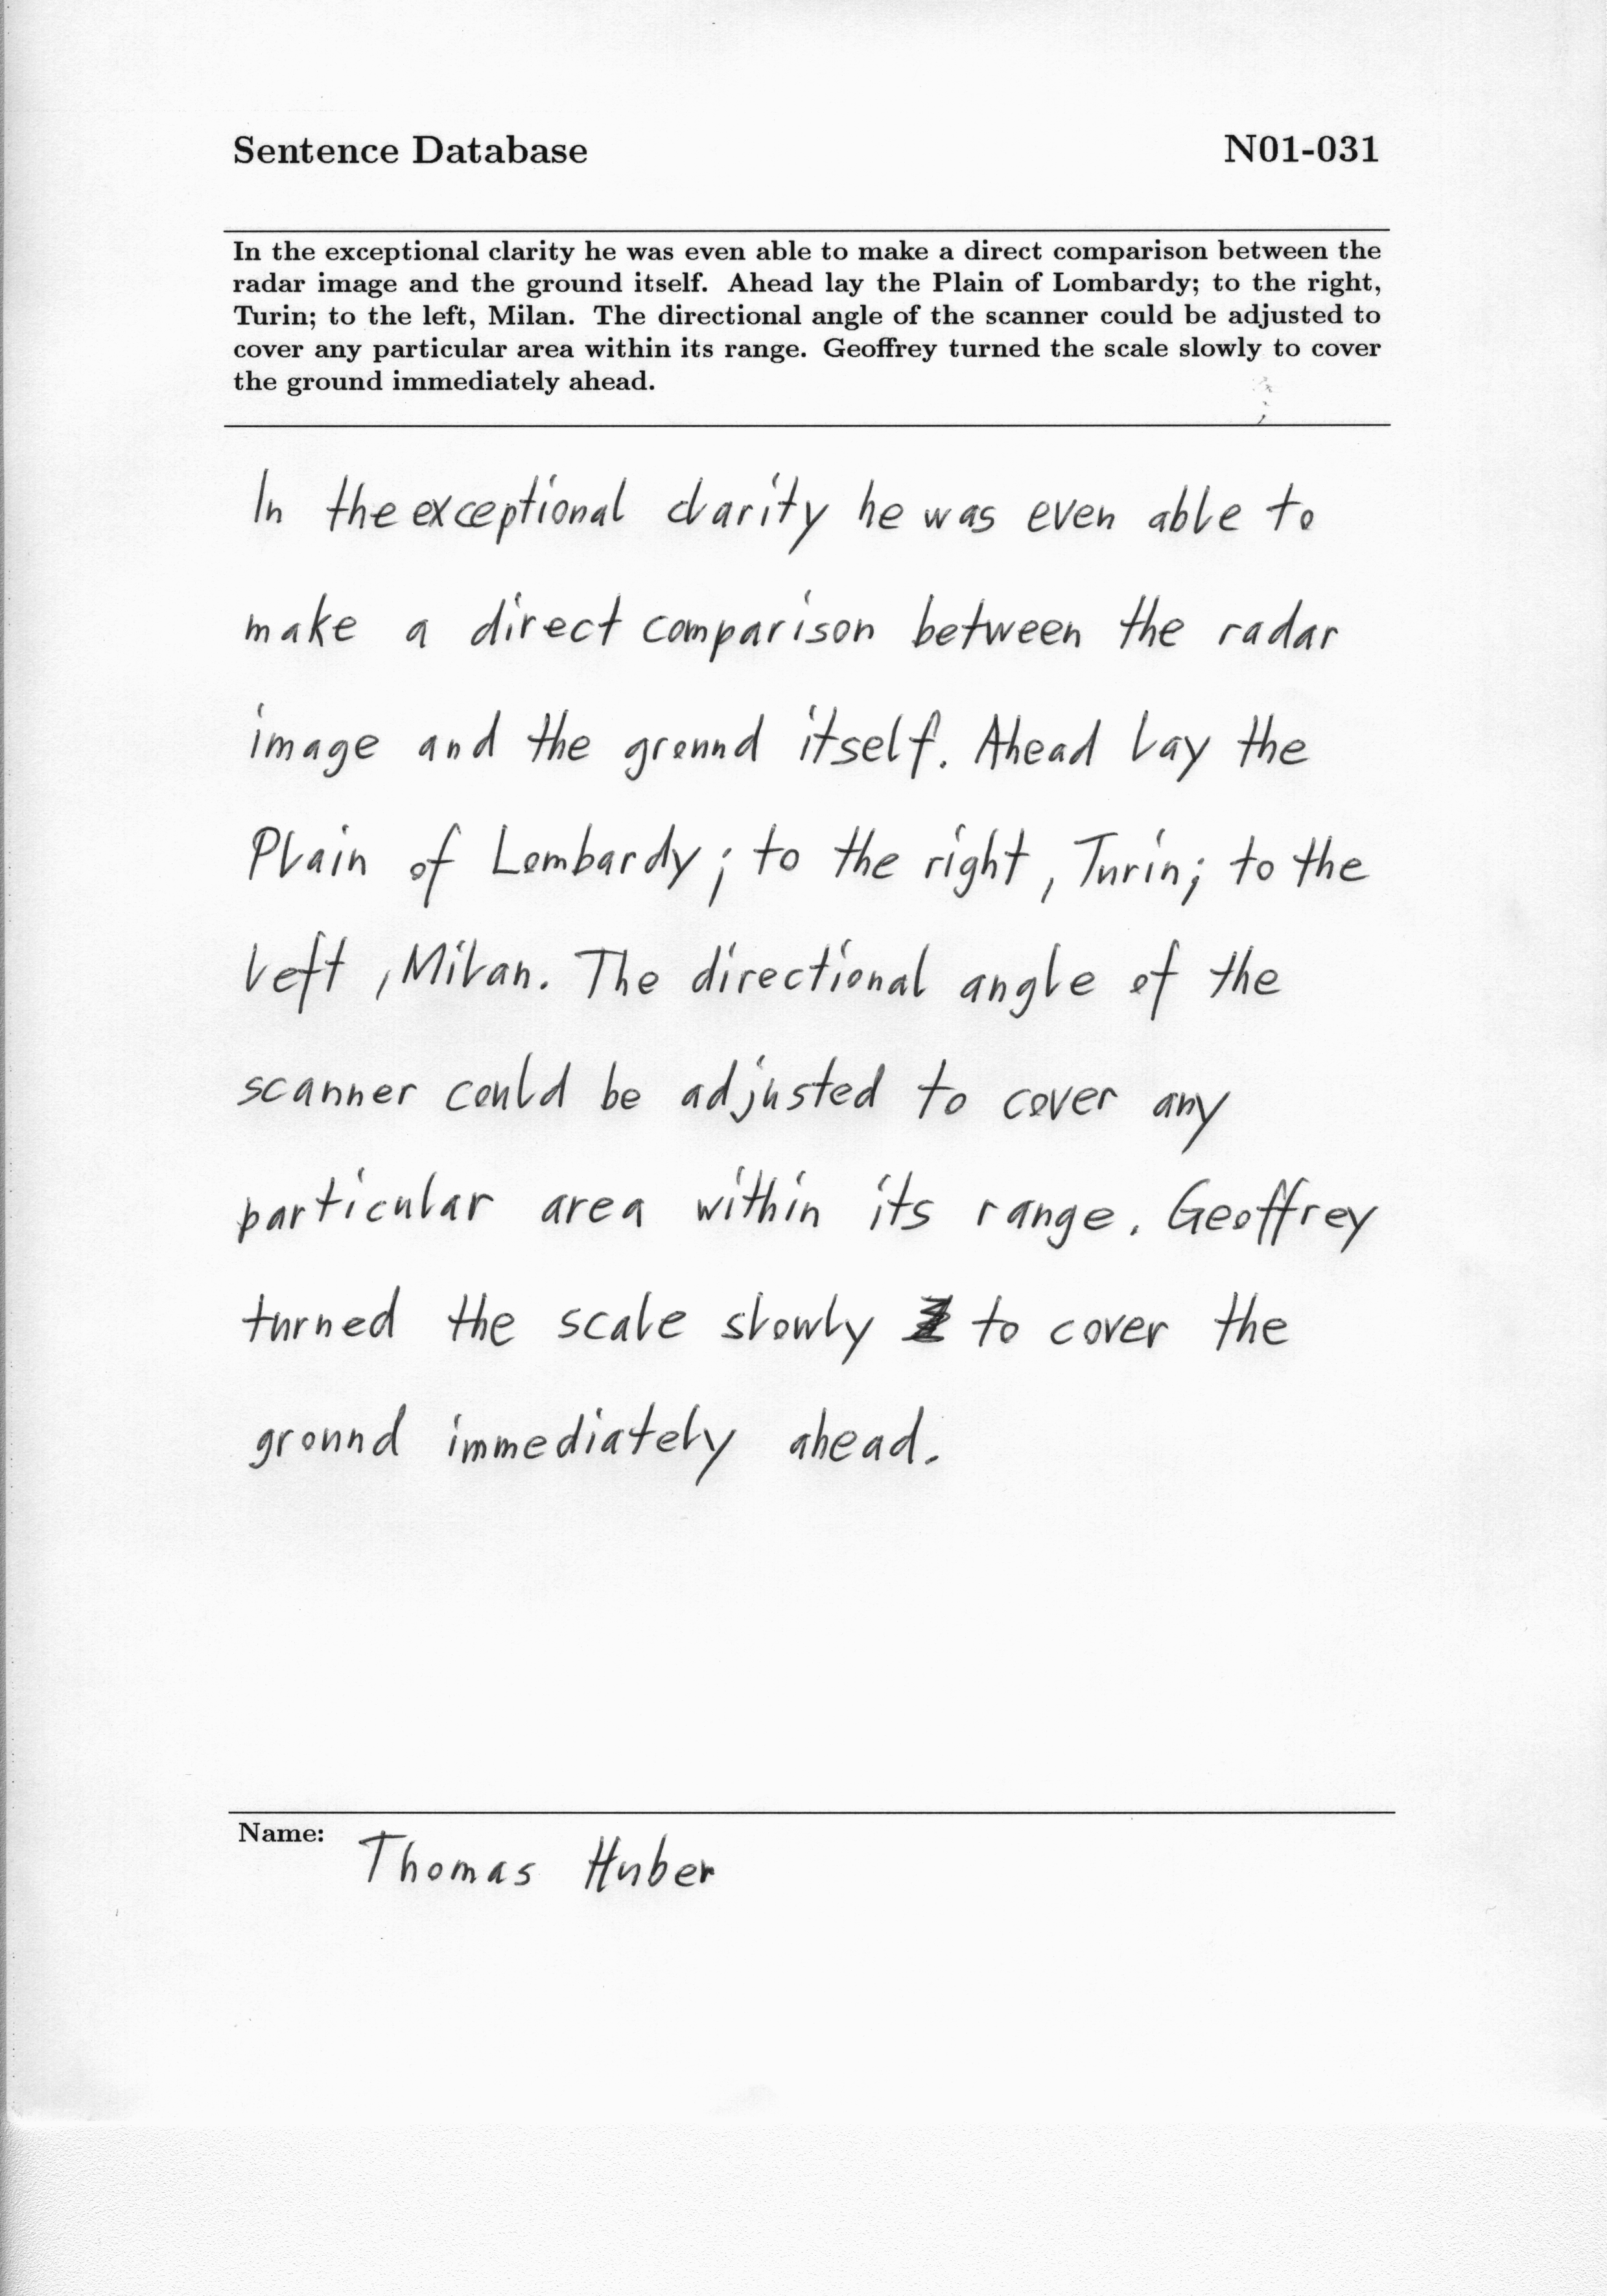 Sentence Database N01-031
In the exceptional clarity he was even able to make a direct comparison between the
radar image and the ground itself. Ahead lay the Plain of Lombardy; to the right,
Turin; to the left, Milan. The directional angle of the scanner could be adjusted to
cover any particular area within its range. Geoffrey turned the scale slowly to cover
the ground immediately ahead.
In the exceptional clarity he was even able to
make a direct comparison between the radar
image and the ground itself. Ahead lay the
Plain of Lombardy; to the right, Turin; to the
left, Milan. The directional angle of the
scanner could be adjusted to cover any
particular area within its range. Geoffrey
turned the scale slowly to cover the
ground immediately ahead.
Name: Thomas Huber